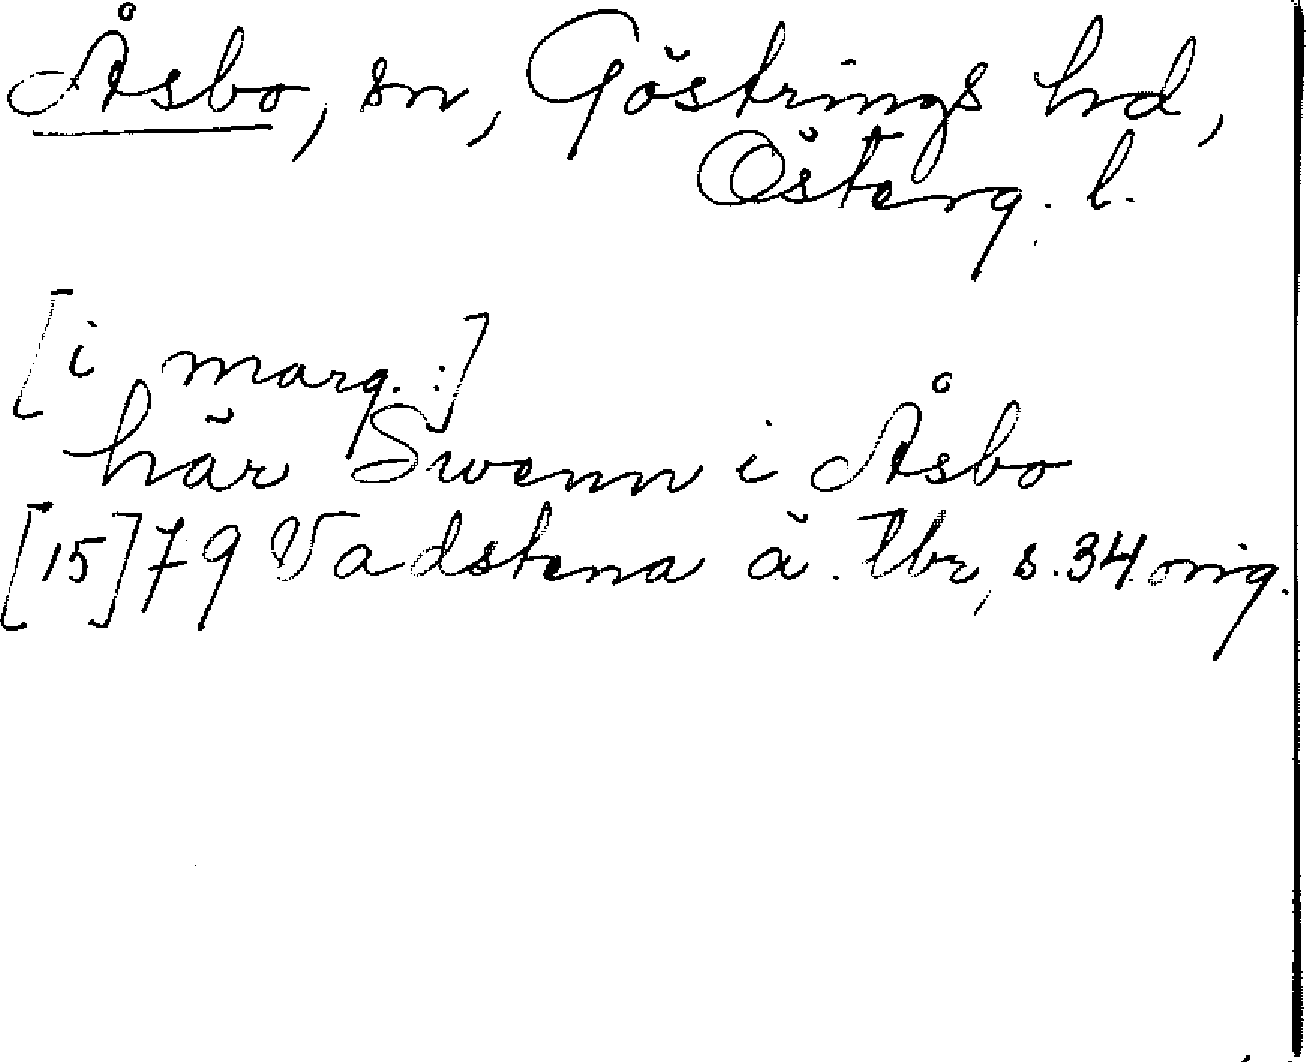 Åsbo, sn, Göstrings hd,
Österg. l.
[i marg.:]
här Swenn i Åsbo
[15]79 Vadstena ä. tbr, s. 34 orig.